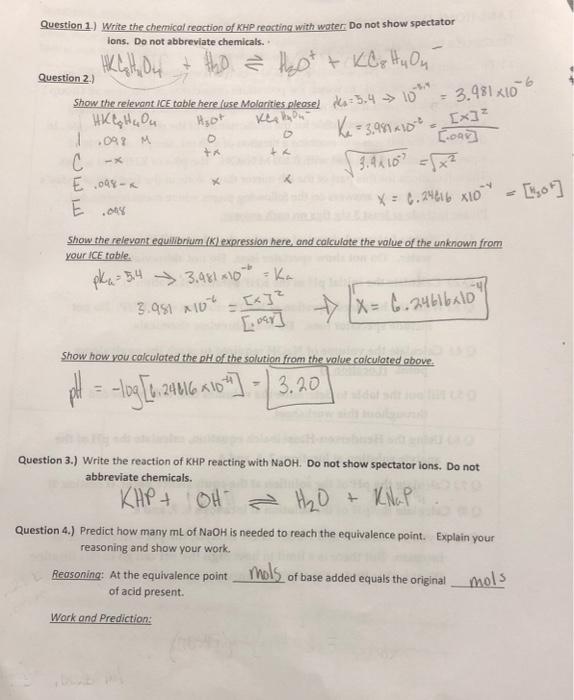 Question 1.) Write the chemical reaction of KHP reacting with water: Do not show spectator
ions. Do not abbreviate chemicals.
HKC8H4O4 + H2O ⇌ H3O+ + KC8H4O4-
Question 2.)
Show the relevant ICE table here (use Molarities please) pKa=5.4 → 10^-5.4 = 3.981 x10^-6
HKC8H4O4 H3O+ KC8H4O4- Ka = 3.981x10^-6 = [x]² / [.098]
I .098 M 0 0
C -x +x +x √3.9x10^-7 = √x²
E .098-x x x
E .098 x = 6.24616 x10^-4 = [H3O+]
Show the relevant equilibrium (K) expression here, and calculate the value of the unknown from
your ICE table.
pKa = 5.4 → 3.981 x10^-6 = Ka
3.981 x10^-6 = [x]² / [.098] → x = 6.24616x10^-4
Show how you calculated the pH of the solution from the value calculated above.
pH = -log[6.24616 x10^-4] = 3.20
Question 3.) Write the reaction of KHP reacting with NaOH. Do not show spectator ions. Do not
abbreviate chemicals.
KHP + OH- ⇌ H2O + KNaP
Question 4.) Predict how many mL of NaOH is needed to reach the equivalence point. Explain your
reasoning and show your work.
Reasoning: At the equivalence point mols of base added equals the original mols
of acid present.
Work and Prediction: